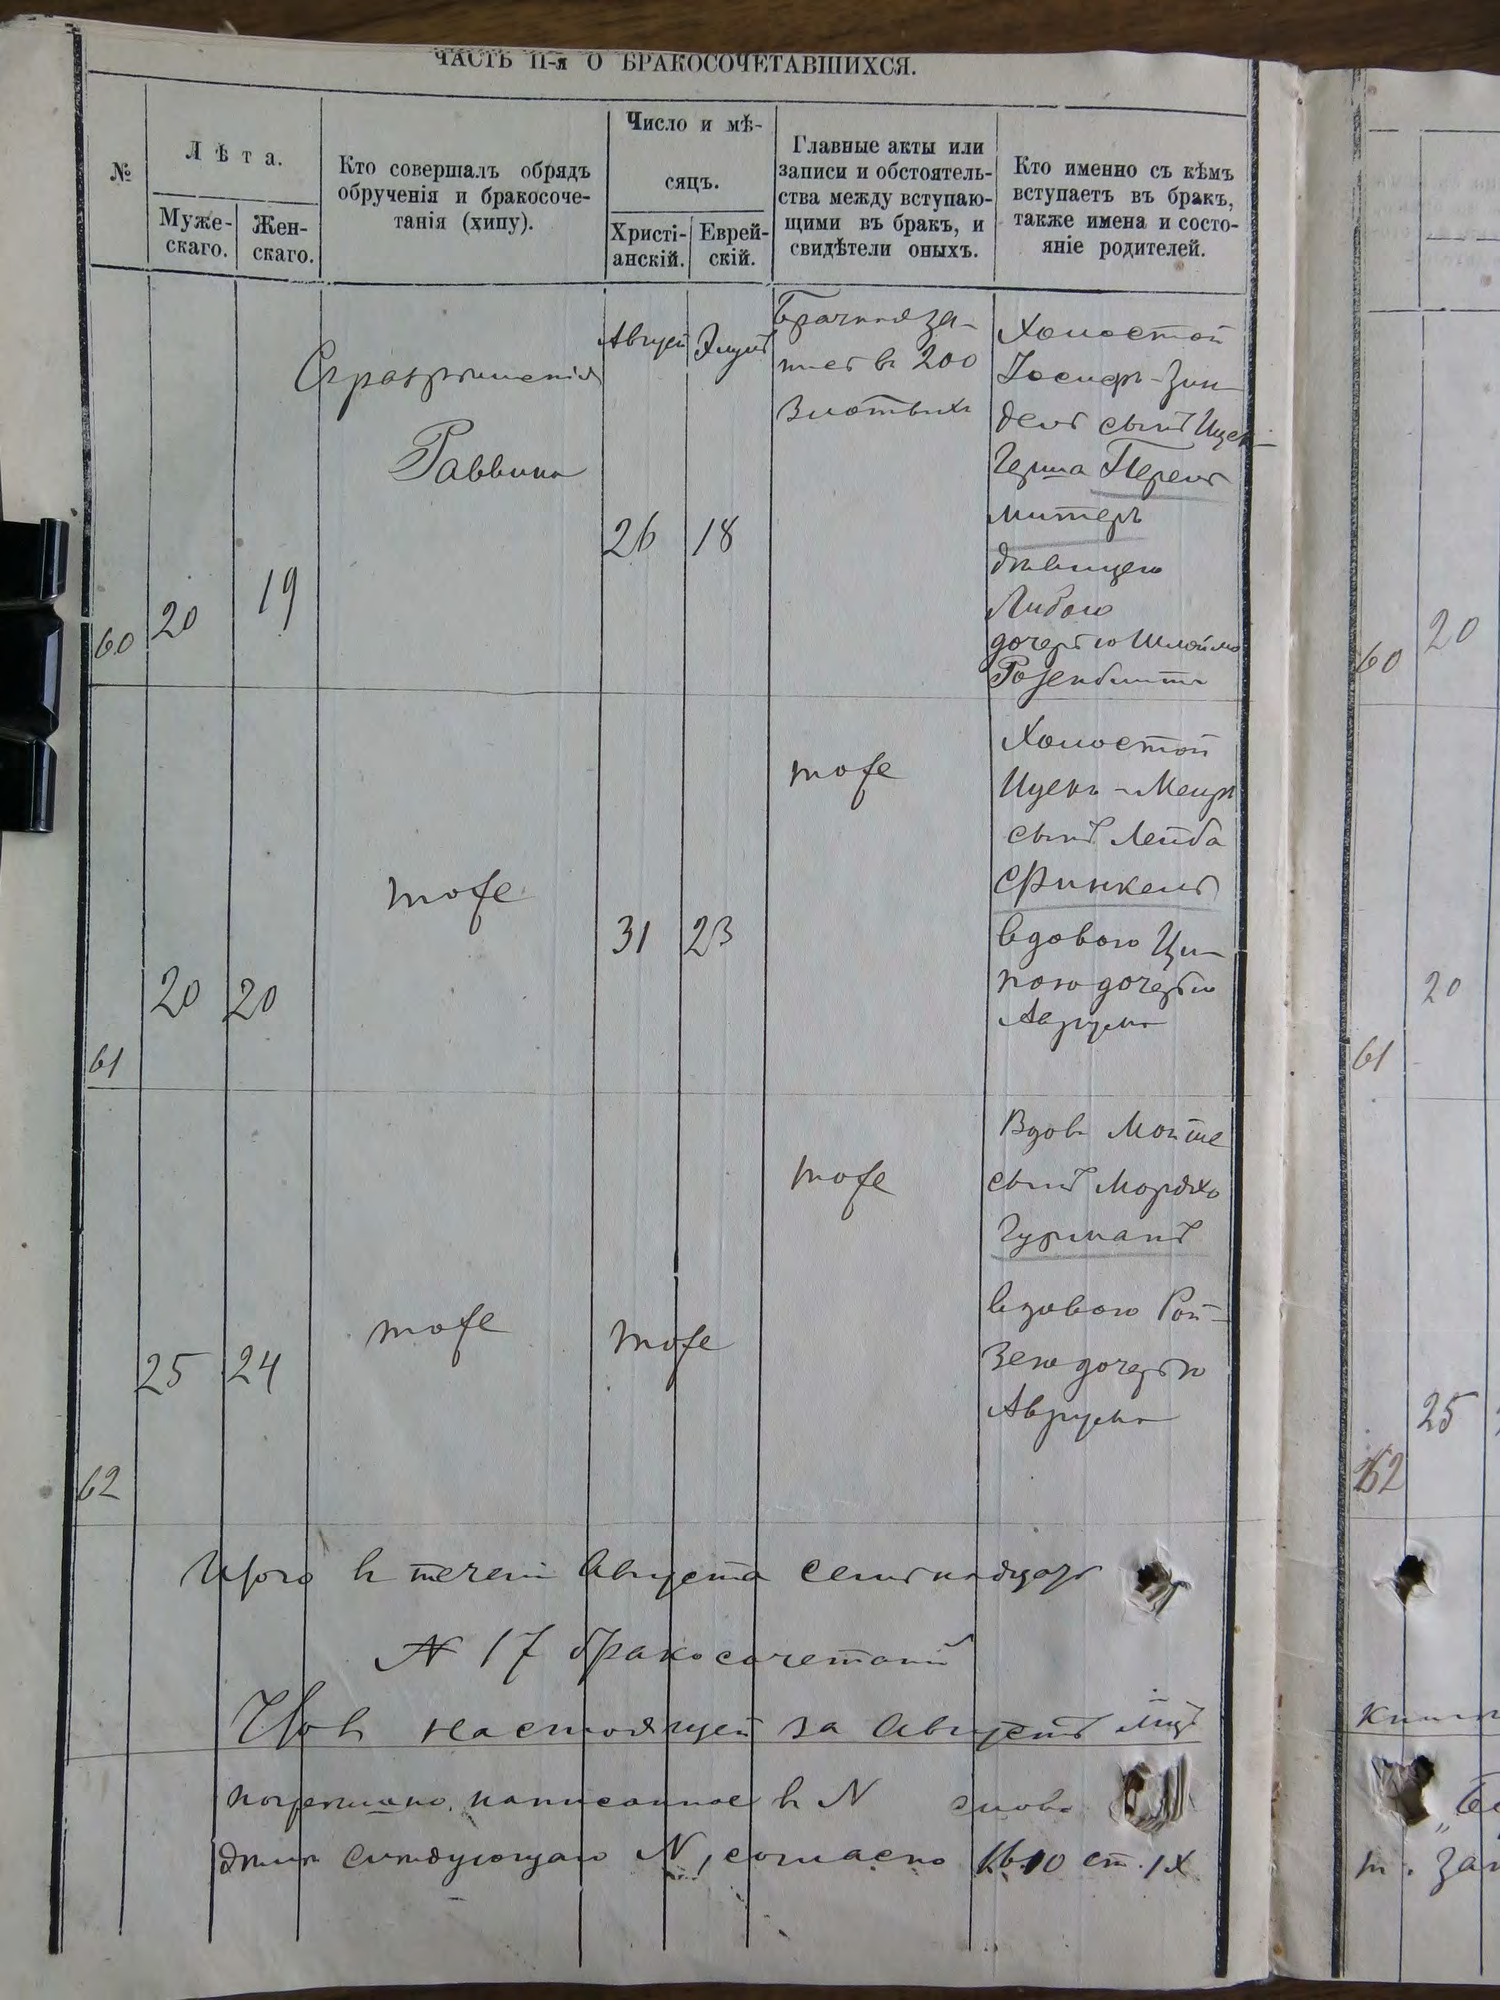 ЧАСТЬ II-я О БРАКОСОЧЕТАВШИХСЯ.
№
Лѣта.
Муже-
скаго.
Жен-
скаго.
Кто совершалъ обрядъ
обрученія и бракосоче-
танія (хипу).
Число и мѣ-
сяцъ.
Христі-
анскій.
Еврей-
скій.
Главные акты или
записи и обстоятель-
ства между вступаю-
щими въ бракъ, и
свидѣтели оныхъ.
Кто именно съ кѣмъ
вступаетъ въ бракъ,
также имена и состо-
яніе родителей.
60
20
19
Съ разрѣшенія
Раввина
Августъ
26
Элулъ
18
Брачная за-
пись въ 200
злотыхъ
Холостой
Іосифъ-Зин-
дель сынъ Ицекъ-
Герша Перель
митеръ
дѣвицею
Либою
дочерью Шлойма
Розенблитъ
61
20
20
тоже
31
23
тоже
Холостой
Ицекъ-Меиръ
сынъ Лейба
Финкель
вдовою Ци-
пою дочерью
Аврума
62
25
24
тоже
тоже
тоже
Вдовъ Мойше
сынъ Мордко
Гурманъ
вдовою Рой-
зею дочерью
Аврума
Итого въ теченіи Августа семнадцать
№ 17 бракосочетаній
Что въ настоящей за Августъ мцъ
написанное въ № слово
слѣдующаго №, согласно ст. IX
60
20
20
61
25
62